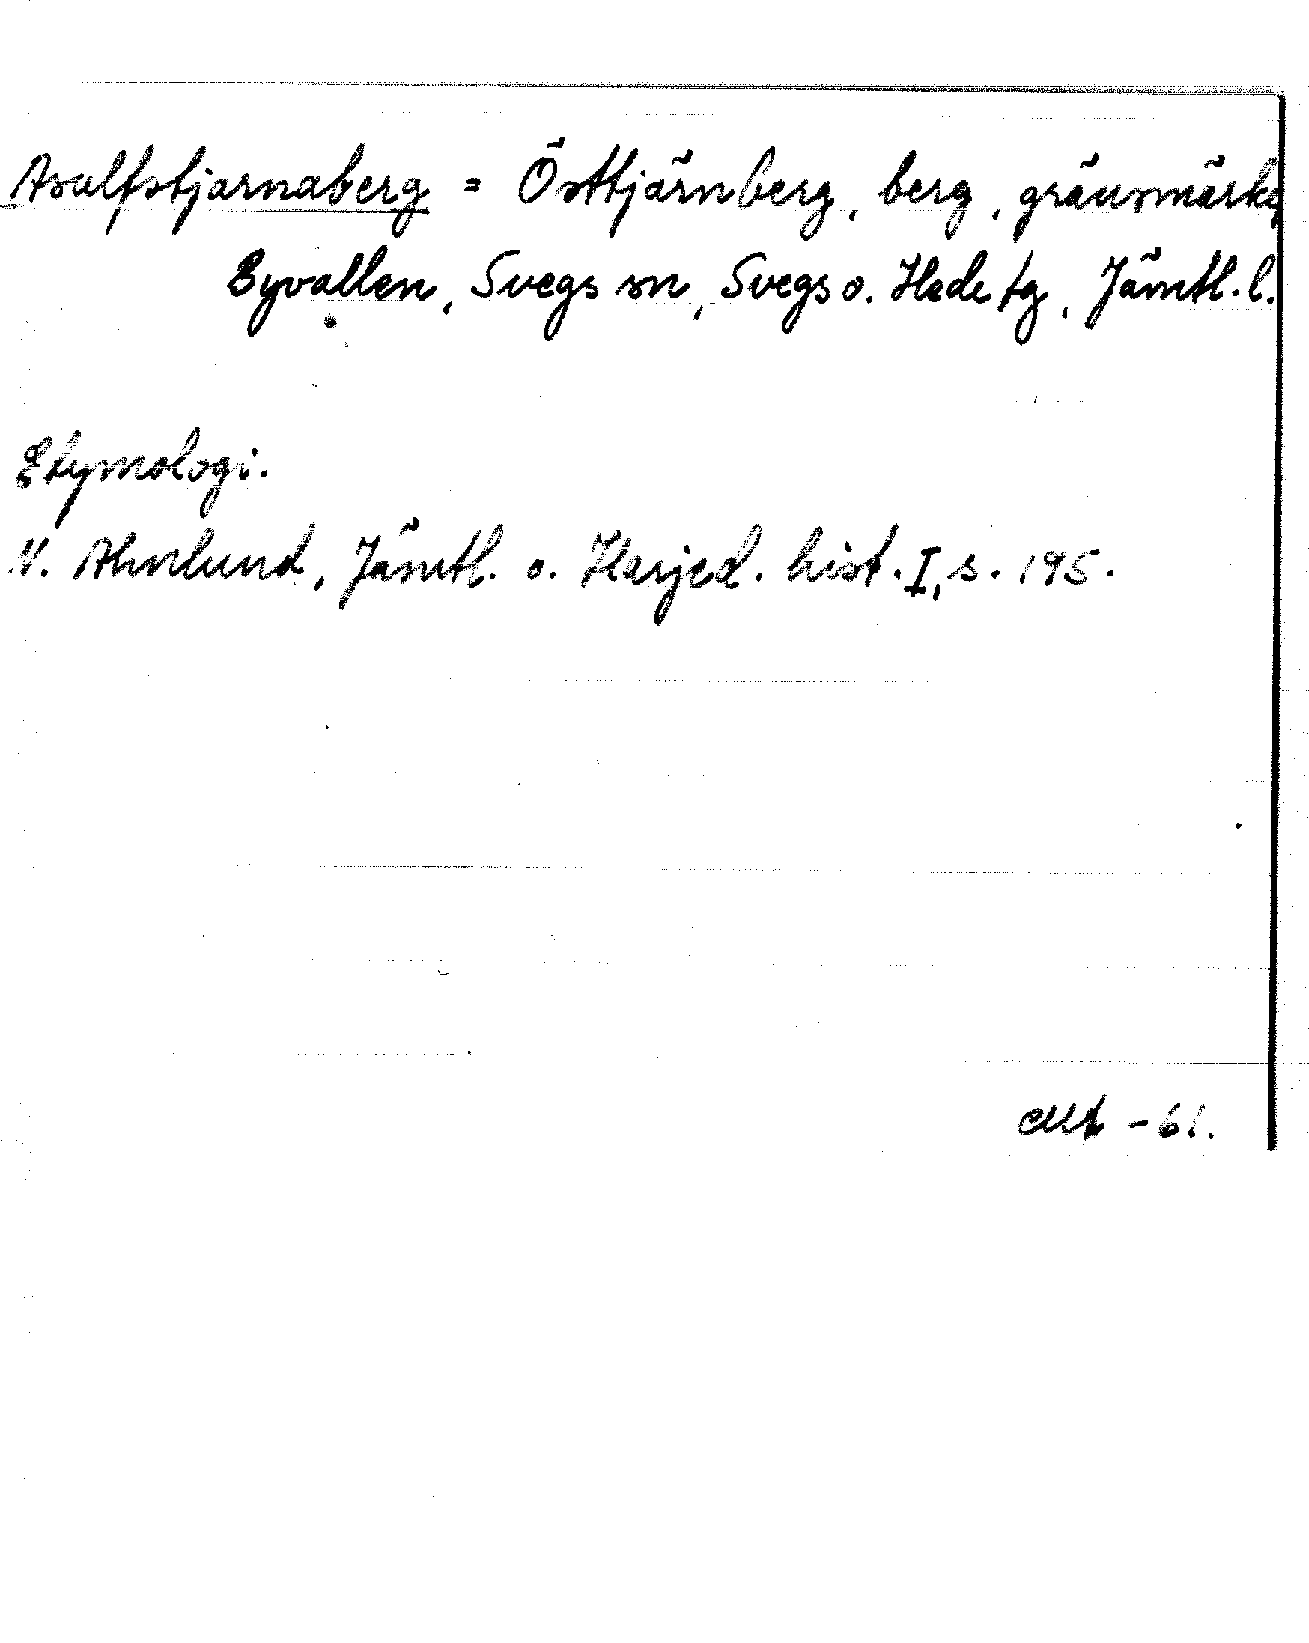 Asulfstjarnaberg = Östtjärnberg, berg, gränsmärke
Eyvallen, Svegs sn, Svegs o. Hede tg, Jämtl. l.
Etymologi.
N. Ahnlund, Jämtl. o. Harjed. hist. I, s. 195.
-61.